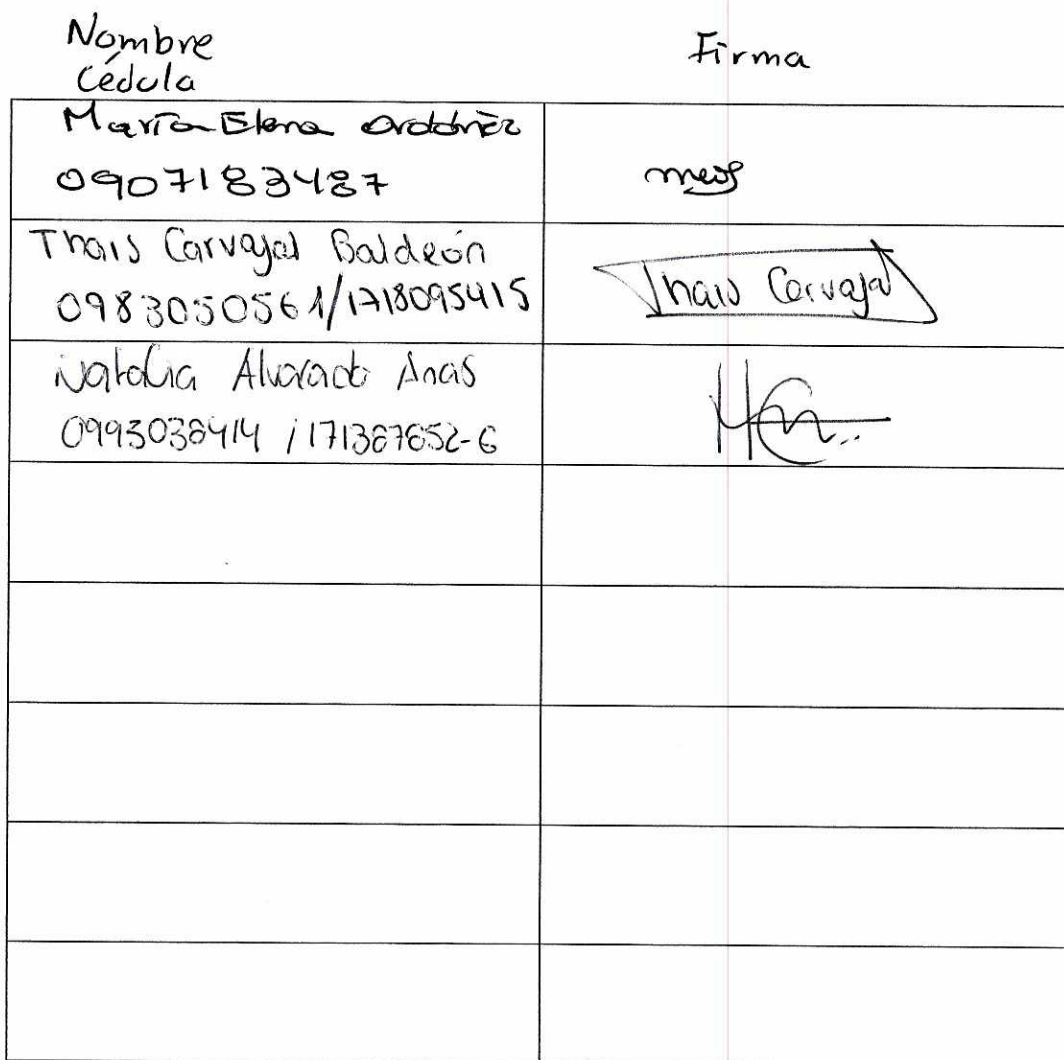 Nombre
Cédula
Firma
María Elena Ordóñez
0907183487
Thais Carvajal Baldeón
0983050561/1718095415
Thais Carvajal
Natalia Alvarado Arias
0995038414 / 171387652-6